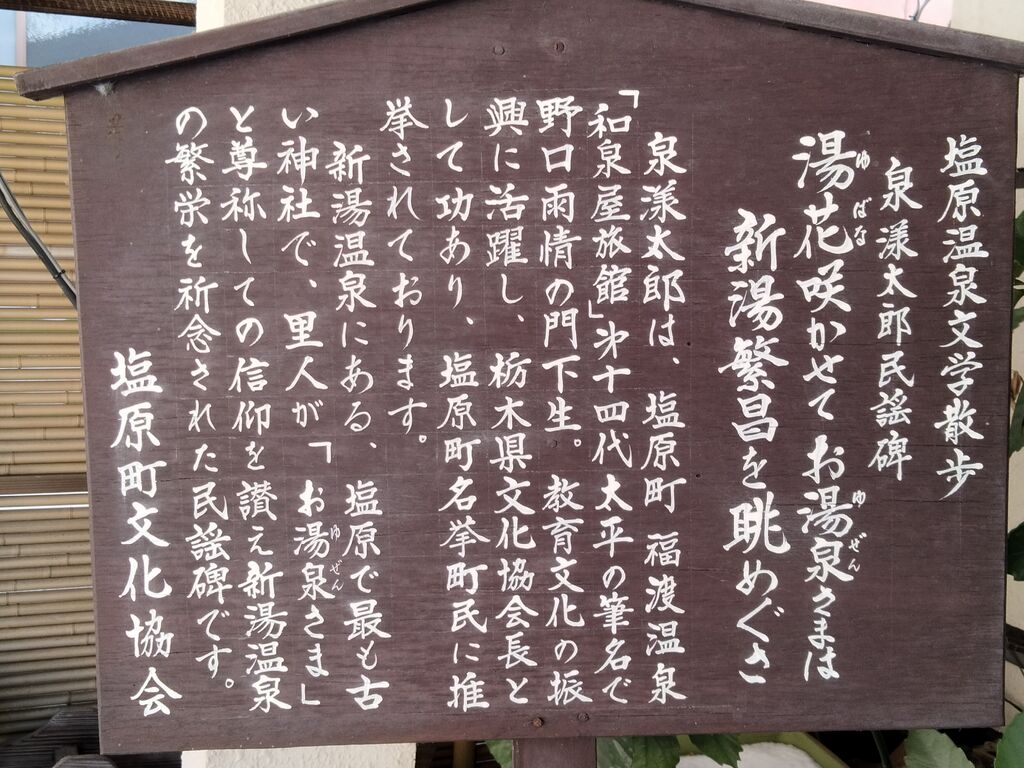 塩原温泉文学散歩
泉漾太郎民謡碑
湯花咲かせて お湯泉さまは
ゆ ばな ゆ ぜん
新湯繁昌を眺めぐさ
泉漾太郎は、塩原町 福渡温泉
「和泉屋旅館」㐧十四代 太平の筆名で
野口雨情の門下生。教育文化の振
興に活躍し、栃木県文化協会長と
して功あり、塩原町名挙町民に推
挙されております。
新湯温泉にある、塩原で最も古
い神社で、里人が「お湯泉さま」
ゆ ぜん
と尊称しての信仰を讃え新湯温泉
の繁栄を祈念された民謡碑です。
塩原町文化協会